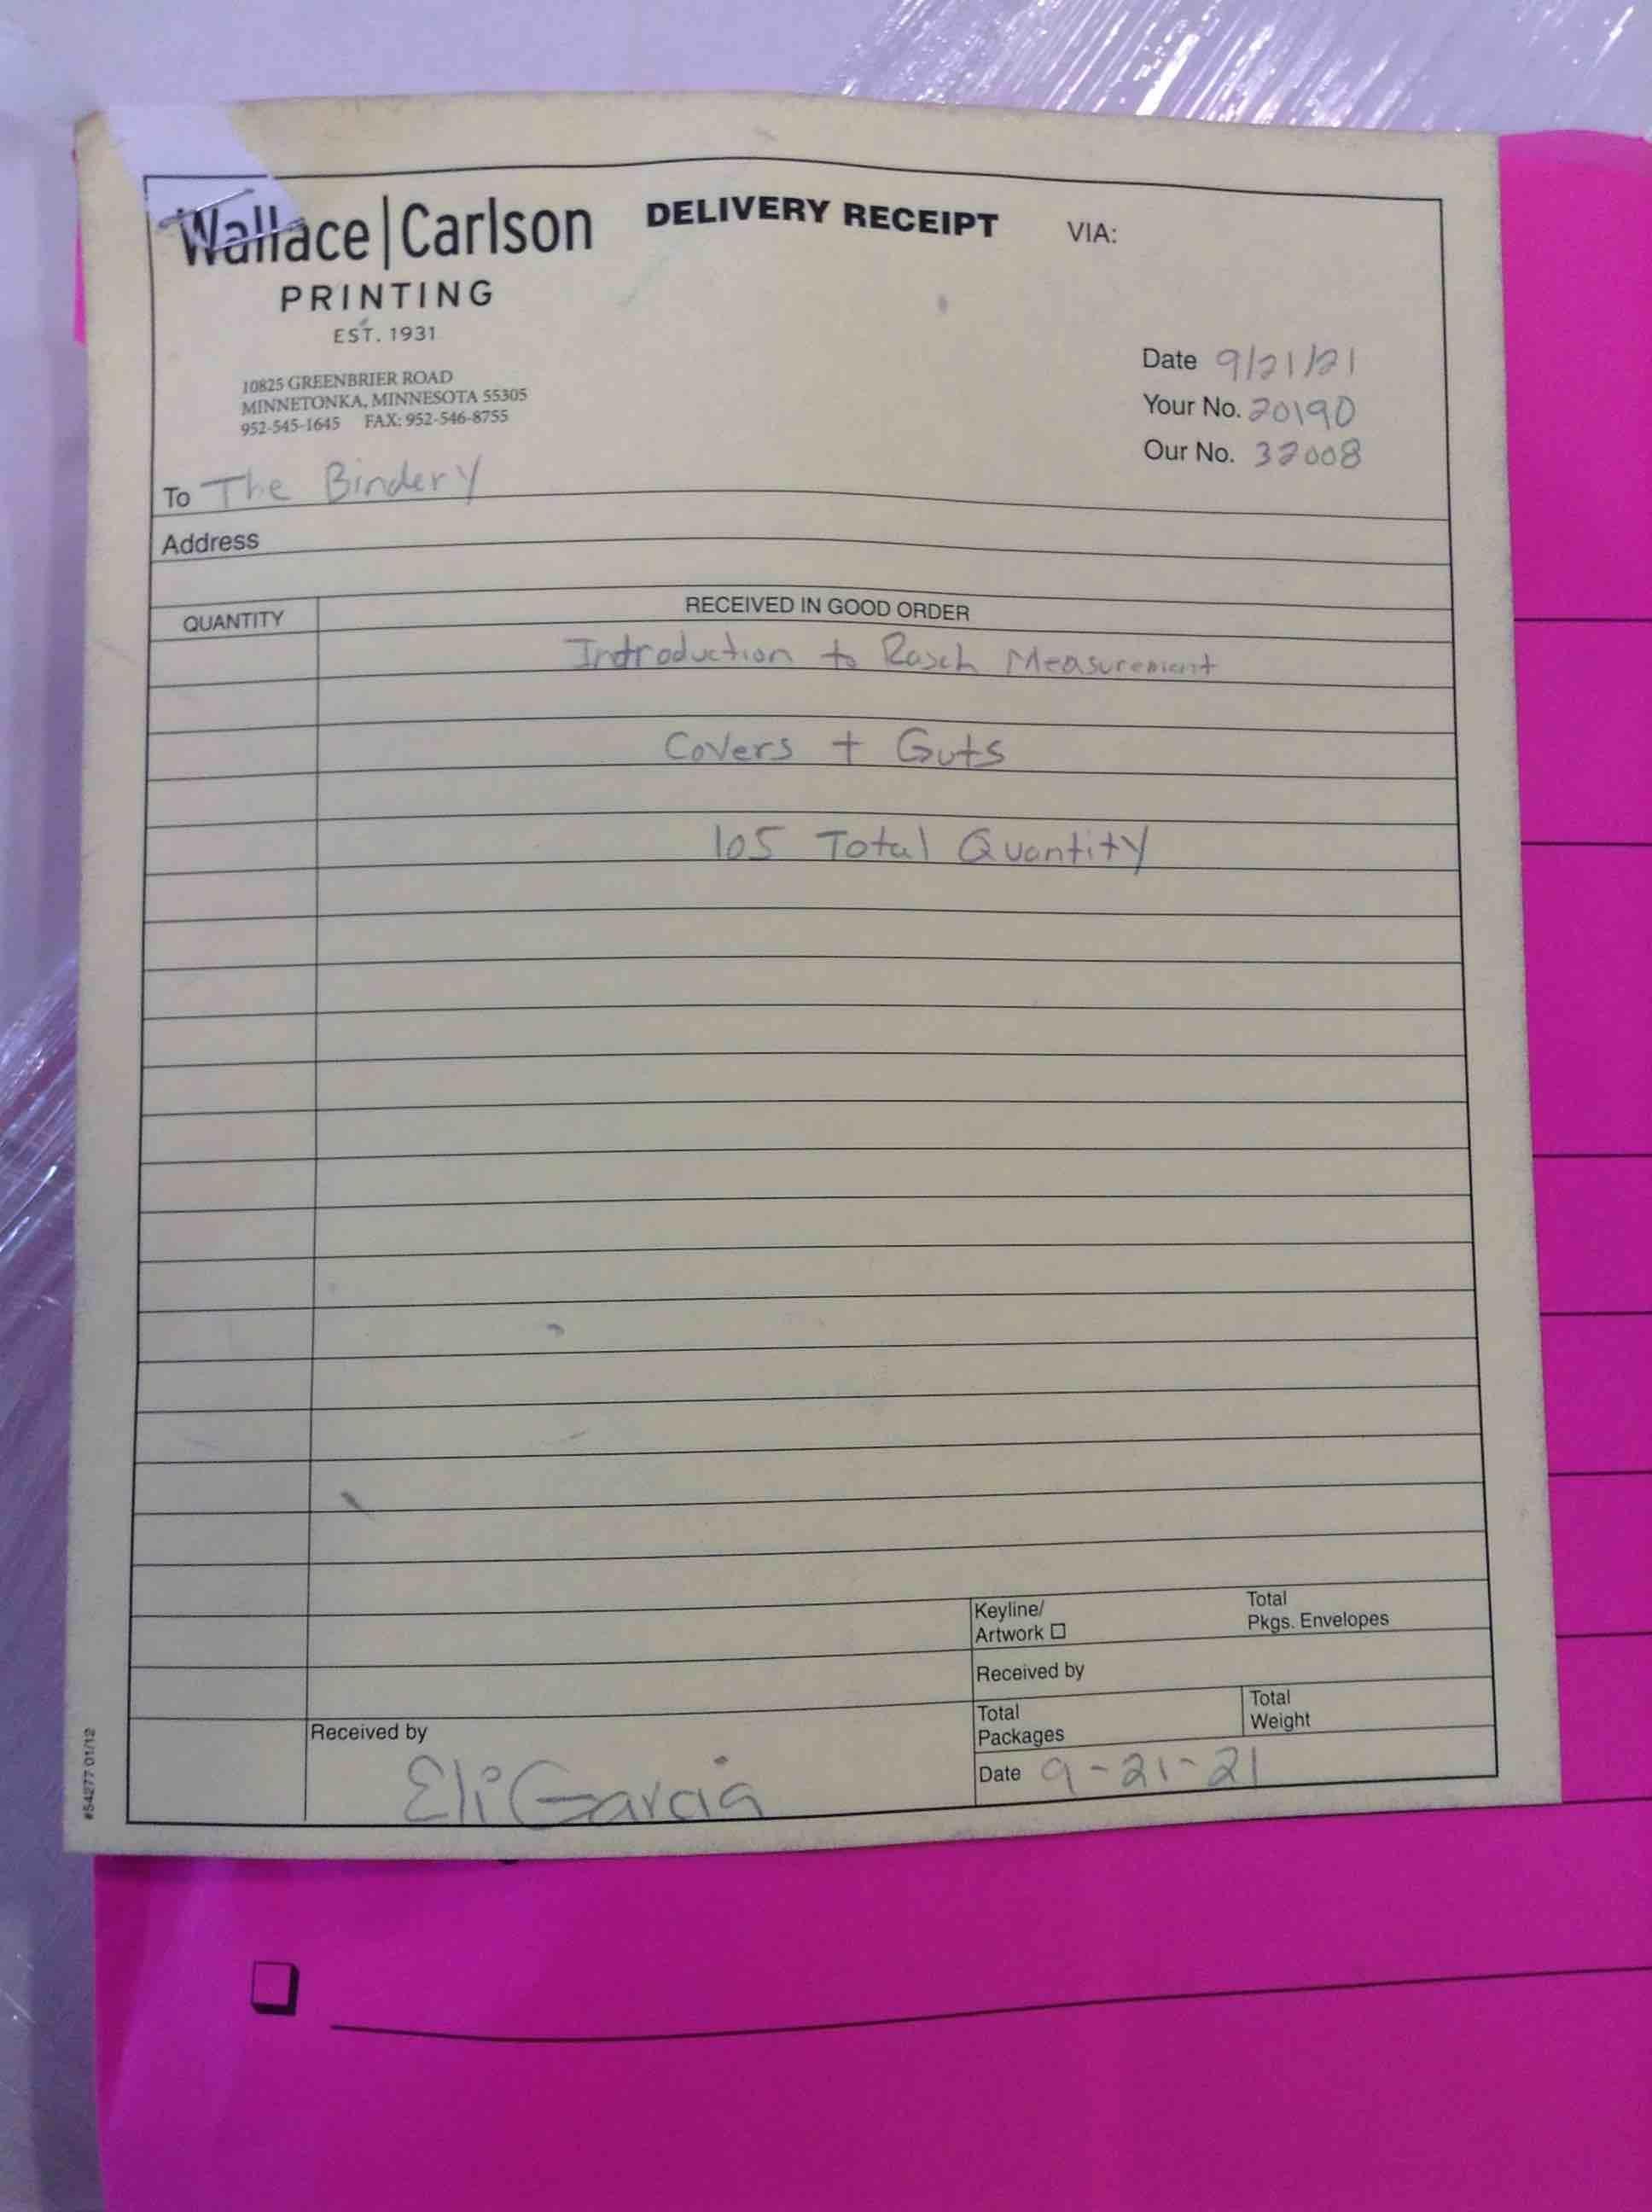 Wallace|Carlson
PRINTING
EST. 1931
10825 GREENBRIER ROAD
MINNETONKA, MINNESOTA 55305
952-545-1645 FAX: 952-546-8755
DELIVERY RECEIPT
VIA:
Date 9/21/21
Your No. 20190
Our No. 32008
To The Bindery
Address
QUANTITY
RECEIVED IN GOOD ORDER
Introduction to Rasch Measurement
Covers + Guts
105 Total Quantity
Keyline/
Artwork ☐
Total
Pkgs. Envelopes
Received by
Total
Packages
Total
Weight
Received by
Eli Garcia
Date 9-21-21
#54277 01/12